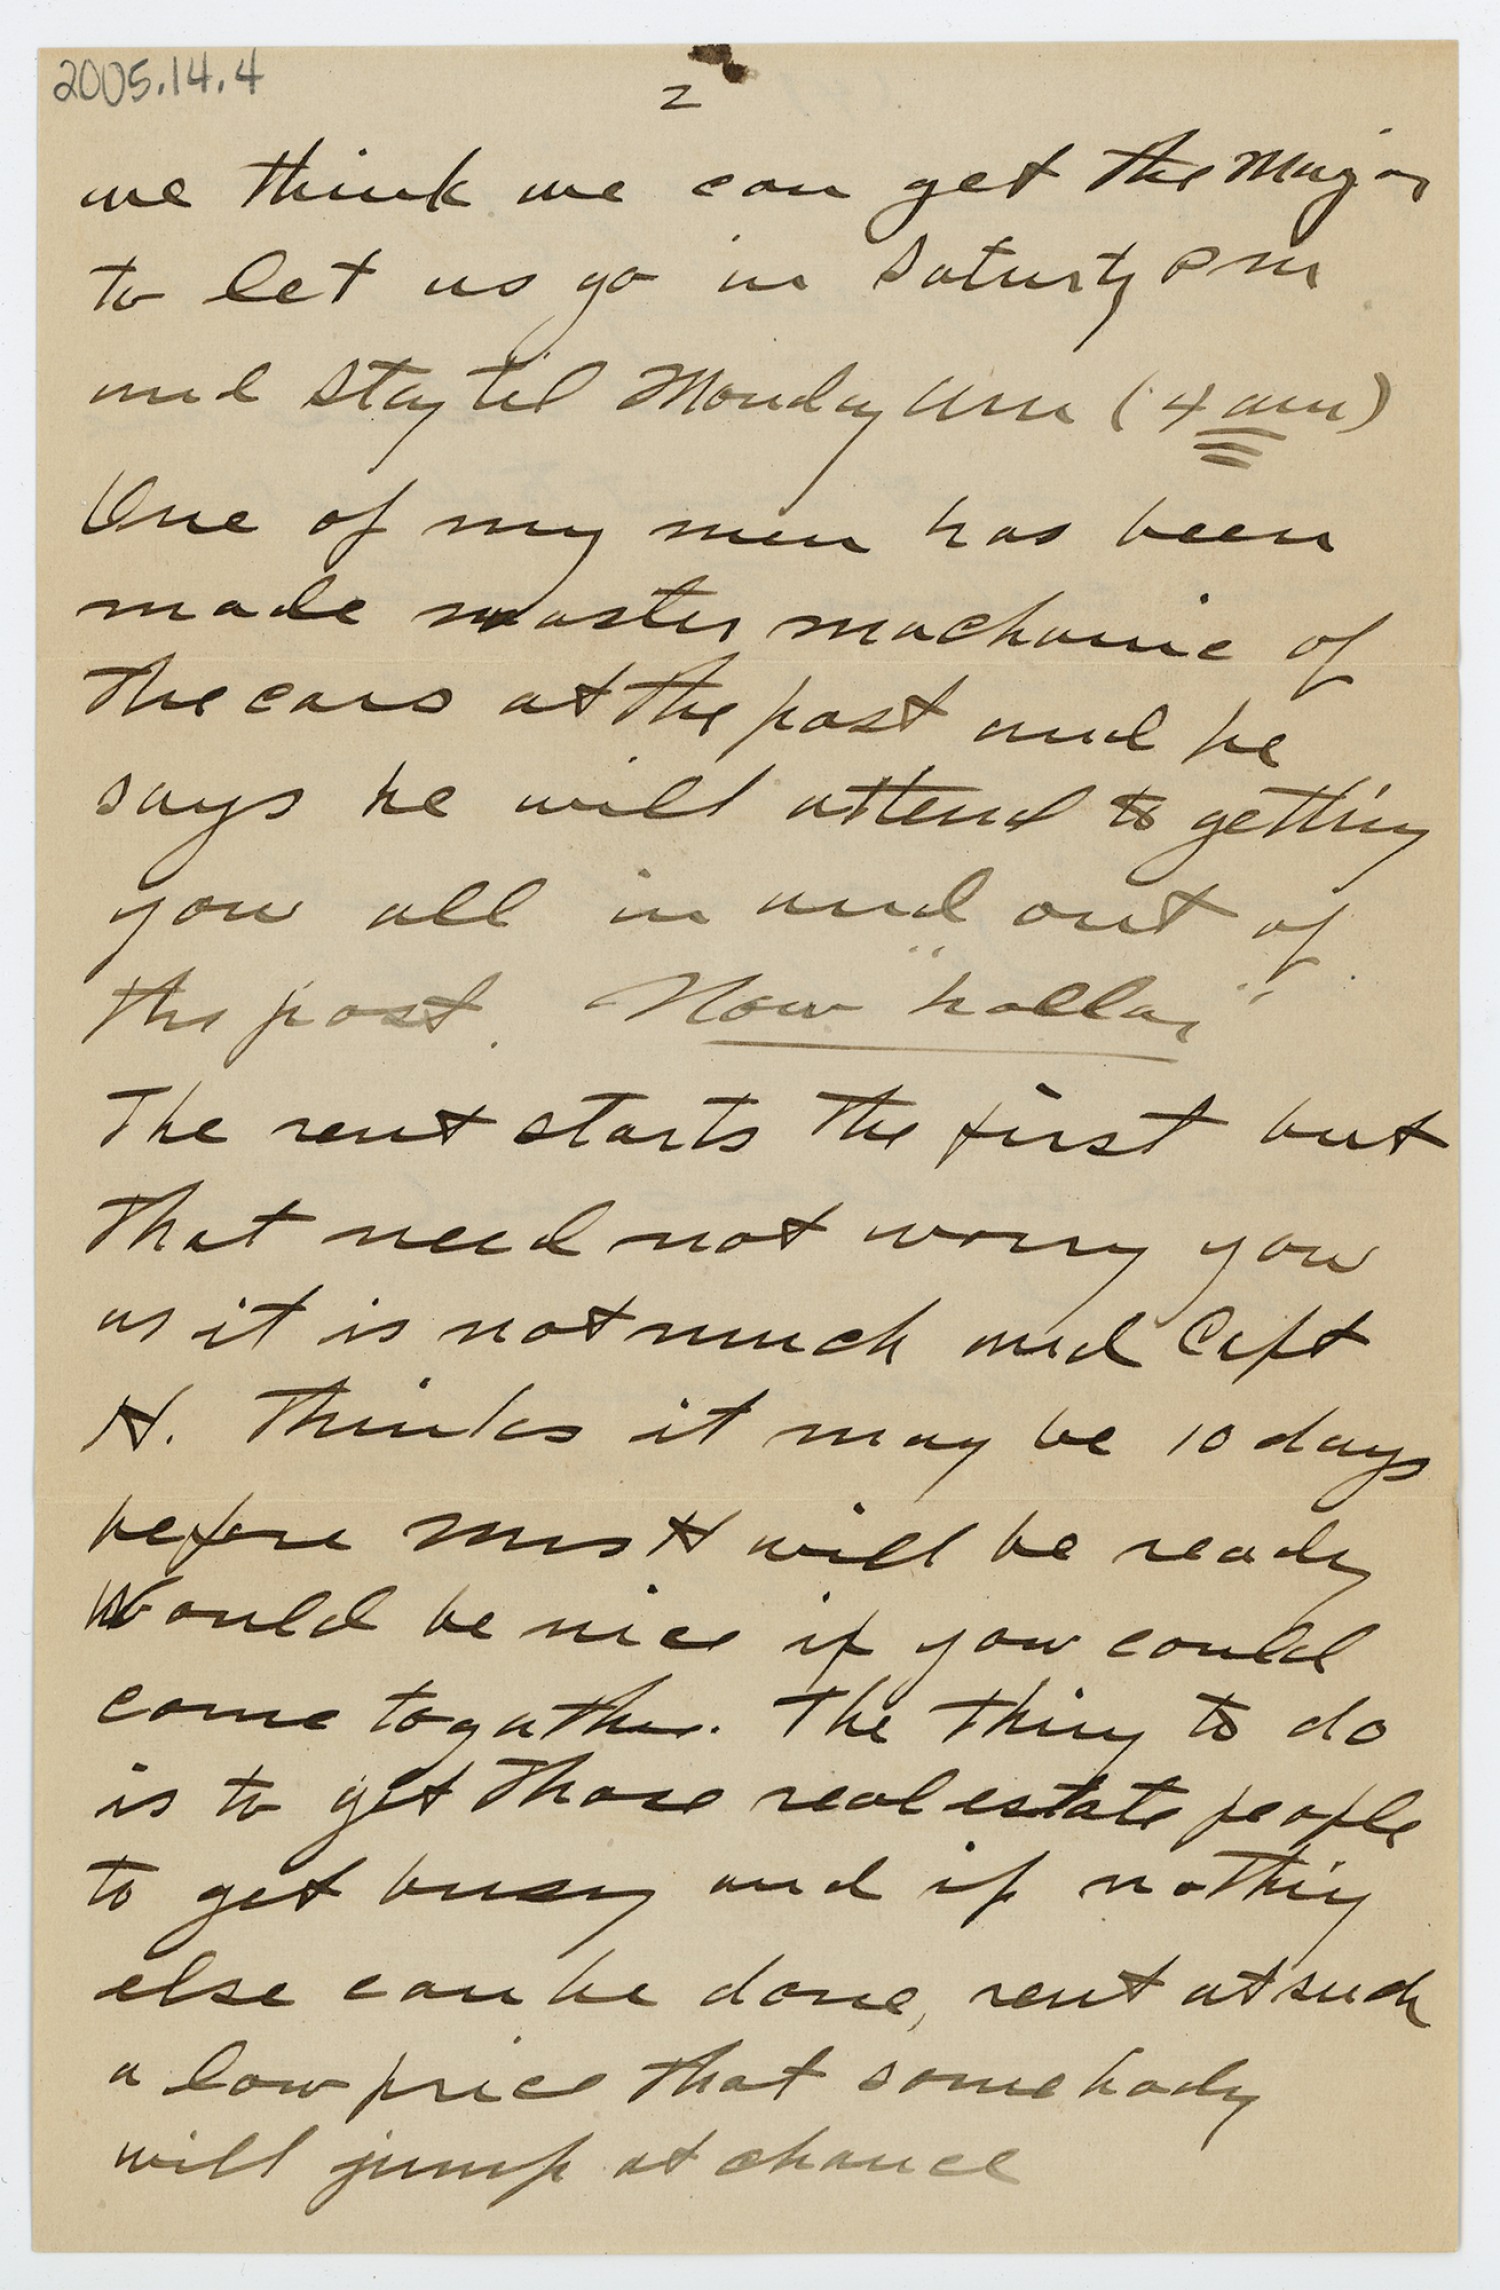 2005.14.4
2
we think we can get the Major
to let us go in Saturdy P m
and stay til Monday Am (4 am)
One of my men has been
made master machanic of
the cars at the post and he
says he will attend to getting
you all in and out of
the post. Now "hollar"
The rent starts the first but
that need not worry you
as it is not much and Capt
H. thinks it may be 10 days
before Mrs H will be ready
Would be nice if you could
come togather. The thing to do
is to get those real estate people
to get busy and if nothing
else can be done, rent at such
a low price that somebody
will jump at chance